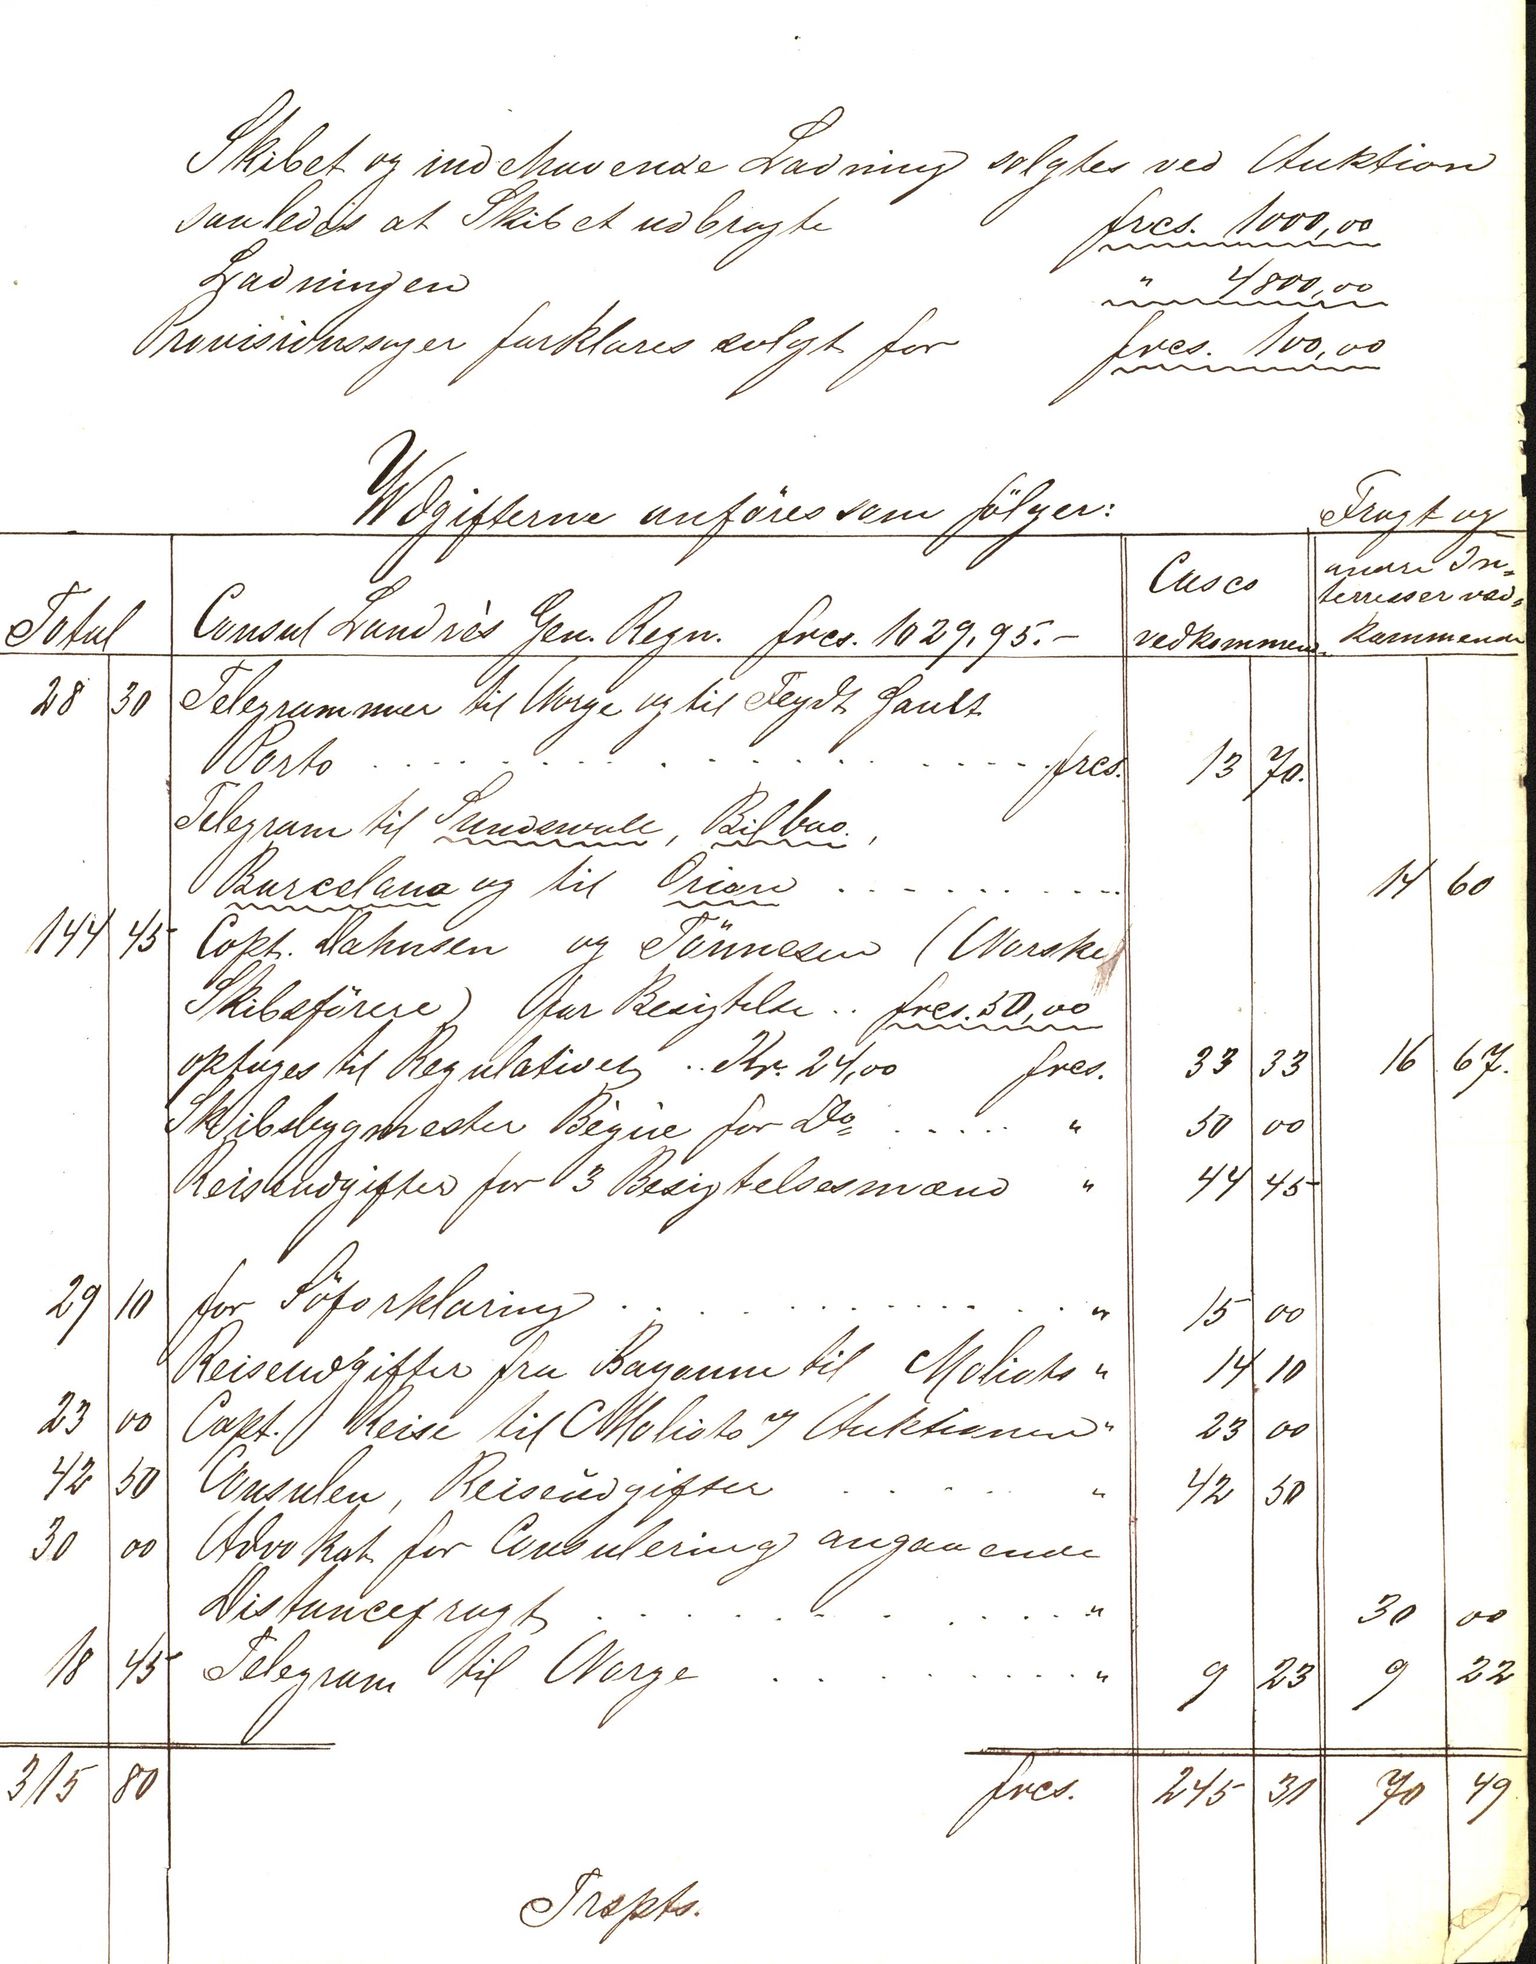 Skibet og indehavende Ladning solgtes ved Auktion
saaledes at Skibet udbragte frcs. 1000,00
Ladningen " 4800,00
Provisionssager forklares solgt for frcs. 100,00
Udgifterne anføres som følger:
Total Consul Landrés Gen. Regn. frcs. 1029,95.- Casco vedkommen- Fragt og andre In- terresser ved- kommende
28 30 Telegrammer til Norge og til Feydt Gault
Porto frcs. 13 70.
Telegram til Sundswall, Bilbao,
Barcelona og til Orion 14 60
144 45 Capt. Dahnsen og Tönnesen (Norske
Skibsförere) for Besigtelse .. frcs. 50,00
optages til Regulativet .. Kr. 24,00 frcs. 33 33 16 67.
Skibsbygmester Bégué for Do " 50 00
Reiseudgifter for 3 Besigtelsesmænd " 44 45
29 10 for Söforklaring " 15 00
Reiseudgifter fra Bayonne til Moliets " 14 10
23 00 Capt. Reise til Moliets ɔ: Auktionen " 23 00
42 50 Consulen, Reiseudgifter " 42 50
30 00 Advokat for Consulering angaaende
Distancefragt " 30 00
18 45 Telegram til Norge " 9 23 9 22
315 80 frcs. 245 31 70 49
Trspts.